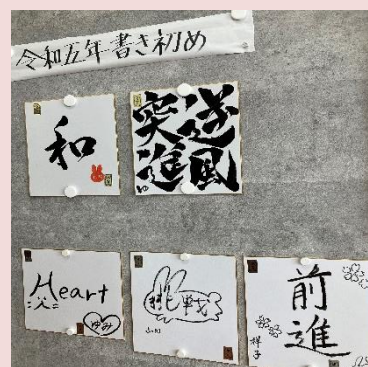 令和五年書き初め
和
逆風
突進
Heart
ゆみ
挑戦
山口
前進
祥子